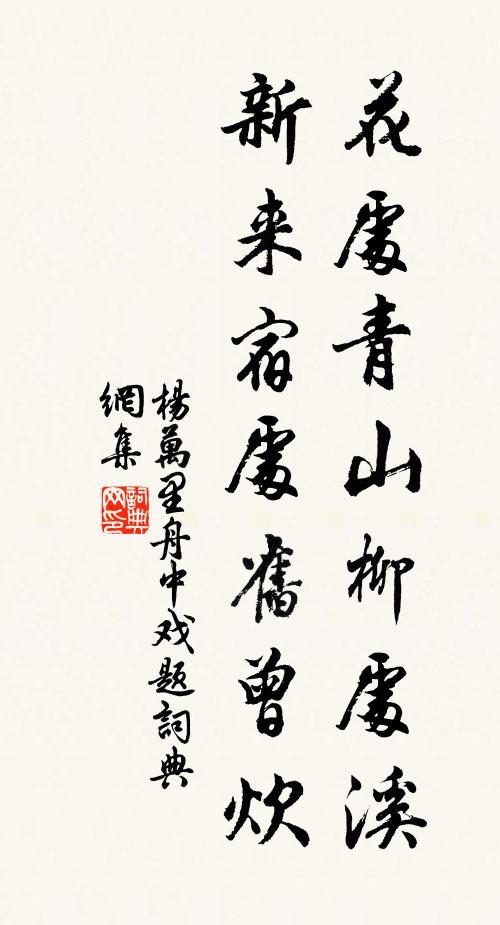 花處青山柳處溪
新来宿處舊曾炊
楊萬里舟中戏題詞典
網集
詞典
网印